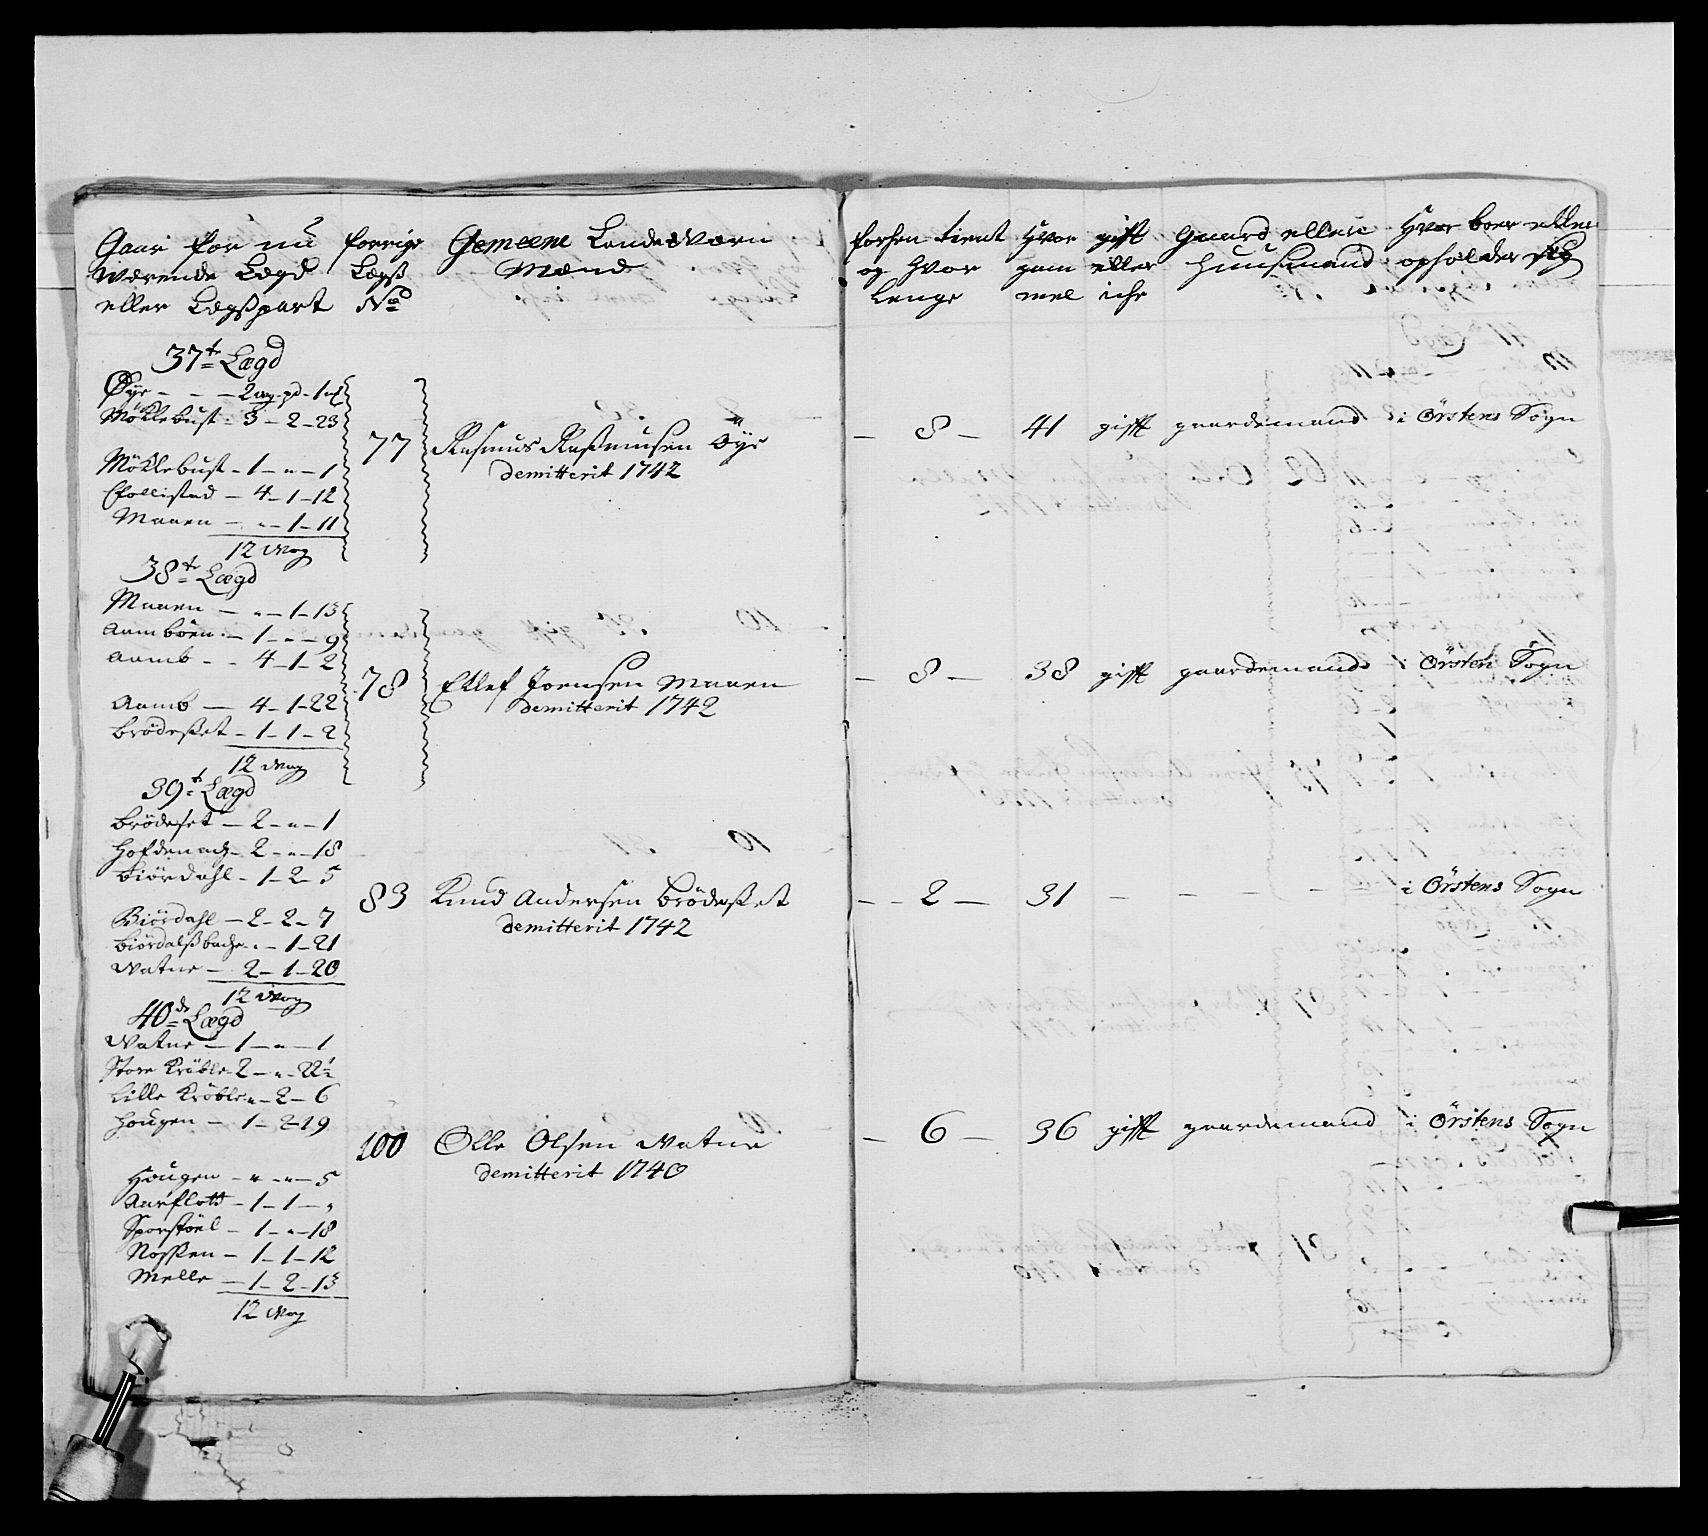 Gaar for nu
værende Lægd
eller Lægßpart
forrige
Lægß
No
Gemeene Landeværn
Mænd
forhen tient
og hvor
lenge
Hvor
gam
mel
gift
eller
ichr
Gaard eller
Huusmand
Hvor boer eller
opholder sig
37te Lægd
Øye - - - 2 - 1
Möklebust - 3 - 2 - 23
Möklebust - 1 - „ - 1
- 4 - 1 - 12
Maaen - „ - 1 - 11
12 Vog
77
Rasmus Raßmusen Öye
demitterit 1742
- 8 -
41
gifft
gaardemand
i Örstens Sogn
38te Lægd
Maaen - „ - 1 - 13
Aamböen - 1 - „ - 9
Aamb - - 4 - 1 - 2
Aamb - 4 - 1 - 22
Brödeßet - 1 - 1 - 2
12 Vog
78
Ellef Joensen Maaen
demitterit 1742
- 8 -
38
gifft
gaardemand
i Örsten Sogn
39te Lægd
Brödeset - 2 - „ - 1
Hofdenach - 2 - „ - 18
Biördahl - 1 - 2 - 5
Biördahl - 2 - 2 - 7
Biördalßbache - „ - 1 - 21
Vatne - 2 - 1 - 20
12 Vog
83
Knud Andersen Brödeßet
demitterit 1742
- - 2 -
31
- - - -
i Örstens Sogn
40de Lægd
Vatne - 1 - „ - 1
Store Kröble - 2 - „ - 22½
Lille Kröble „ - 2 - 6
Hougen - 1 - 2 - 19
Hougen - „ - „ - 5
Aarflott - 1 - 1 - „
Sporstöel - 1 - „ - 18
Noßen - 1 - 1 - 12
Melle - 1 - 2 - 13
12 Vog
100
Olle Olsen Vatne
demitterit 1740
- 6 -
36
gifft
gaardemand
i Örstens Sogn